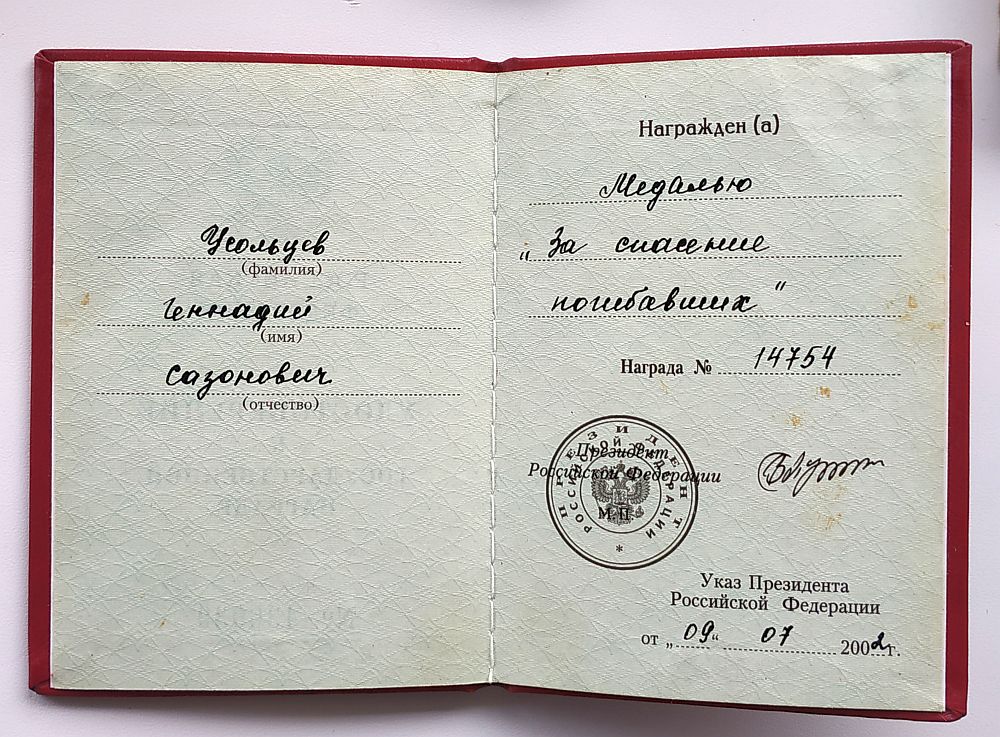 Усольцев
(фамилия)
Геннадий
(имя)
Сазонович
(отчество)
Награжден (а)
Медалью
„За спасение
погибавших"
Награда № 14754
Президент
Российской Федерации
М.П.
ПРЕЗИДЕНТ
РОССИЙСКОЙ ФЕДЕРАЦИИ
Указ Президента
Российской Федерации
от „09“ 07 2002г.